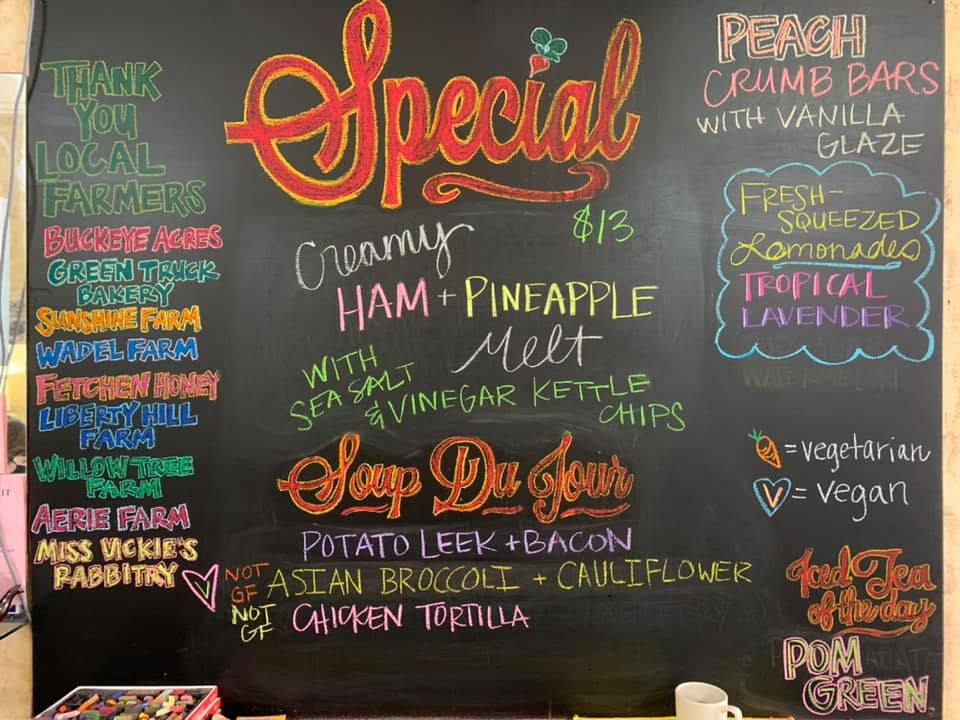 THANK
YOU
LOCAL
FARMERS
BUCKEYE ACRES
GREEN TRUCK
BAKERY
SUNSHINE FARM
WADEL FARM
FETCHEN HONEY
LIBERTY HILL
FARM
WILLOW TREE
FARM
AERIE FARM
MISS VICKIE'S
RABBITRY
Special
$13
Creamy
HAM + PINEAPPLE
Melt
WITH
SEA SALT
& VINEGAR KETTLE
CHIPS
Soup Du Jour
POTATO LEEK + BACON
NOT
GF
ASIAN BROCCOLI + CAULIFLOWER
NOT
GF
CHICKEN TORTILLA
PEACH
CRUMB BARS
WITH VANILLA
GLAZE
FRESH-
SQUEEZED
Lemonades
TROPICAL
LAVENDER
WATERMELON
= vegetarian
V = vegan
Iced Tea
of the day
POM
GREEN